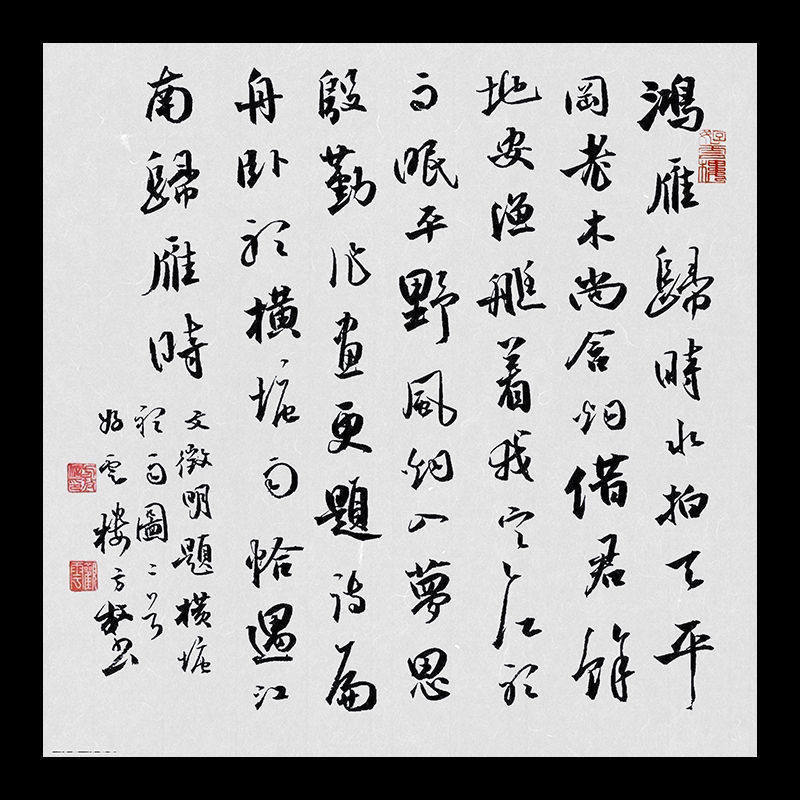 鴻雁歸時水拍天平
岡老木尚含烟借君餘
地安漁艇着我空江聽
雨眠平野風烟入夢思
殷勤作畫更題詩扁
舟卧聽橫塘雨恰遇江
南歸雁時
文徵明題橫塘
聽雨圖二首
好雲樓方